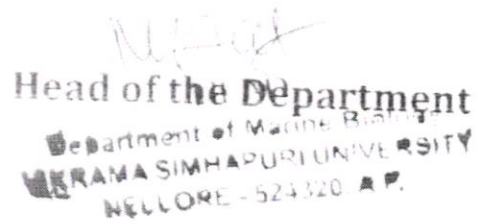 Head of the Department
Department of Marine Biology
VIKRAMA SIMHAPURI UNIVERSITY
NELLORE - 524320 A.P.